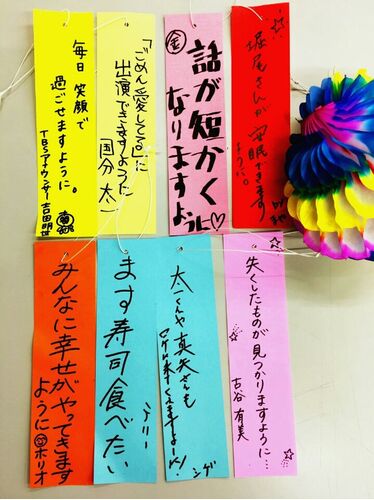 堀尾さんが安眠できます
ように。
金
話が短かく
なりますように♡
「ごめん、愛してる」に
出演できますように
国分 太一
毎日 笑顔で
過ごせますように。
TBSアナウンサー 吉田明世
失くしたものが見つかりますように…
古谷 有美
太一くんや真矢さんも
ロケに来てくれますよーに!
シゲ
ます寿司食べたい
アリー
みんなに幸せがやってきます
ように
ホリオ